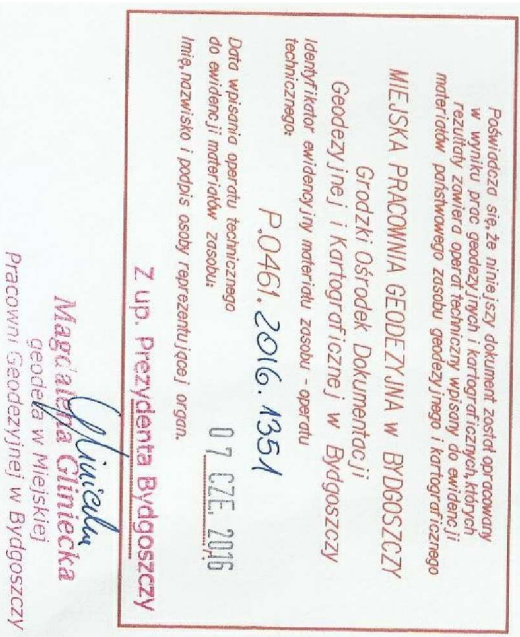 Poświadcza się, że niniejszy dokument został opracowany
w wyniku prac geodezyjnych i kartograficznych, których
rezultaty zawiera operat techniczny wpisany do ewidencji
materiałów państwowego zasobu geodezyjnego i kartograficznego
MIEJSKA PRACOWNIA GEODEZYJNA W BYDGOSZCZY
Grodzki Ośrodek Dokumentacji
Geodezyjnej i Kartograficznej w Bydgoszczy
Identyfikator ewidencyjny materiału zasobu - operatu
technicznego:
P.0461.2016.1351
Data wpisania operatu technicznego
do ewidencji materiałów zasobu:
07 CZE. 2016
Imię, nazwisko i podpis osoby reprezentującej organ.
Z up. Prezydenta Bydgoszczy
Gliniecka
Magdalena Gliniecka
geodeta w Miejskiej
Pracowni Geodezyjnej w Bydgoszczy